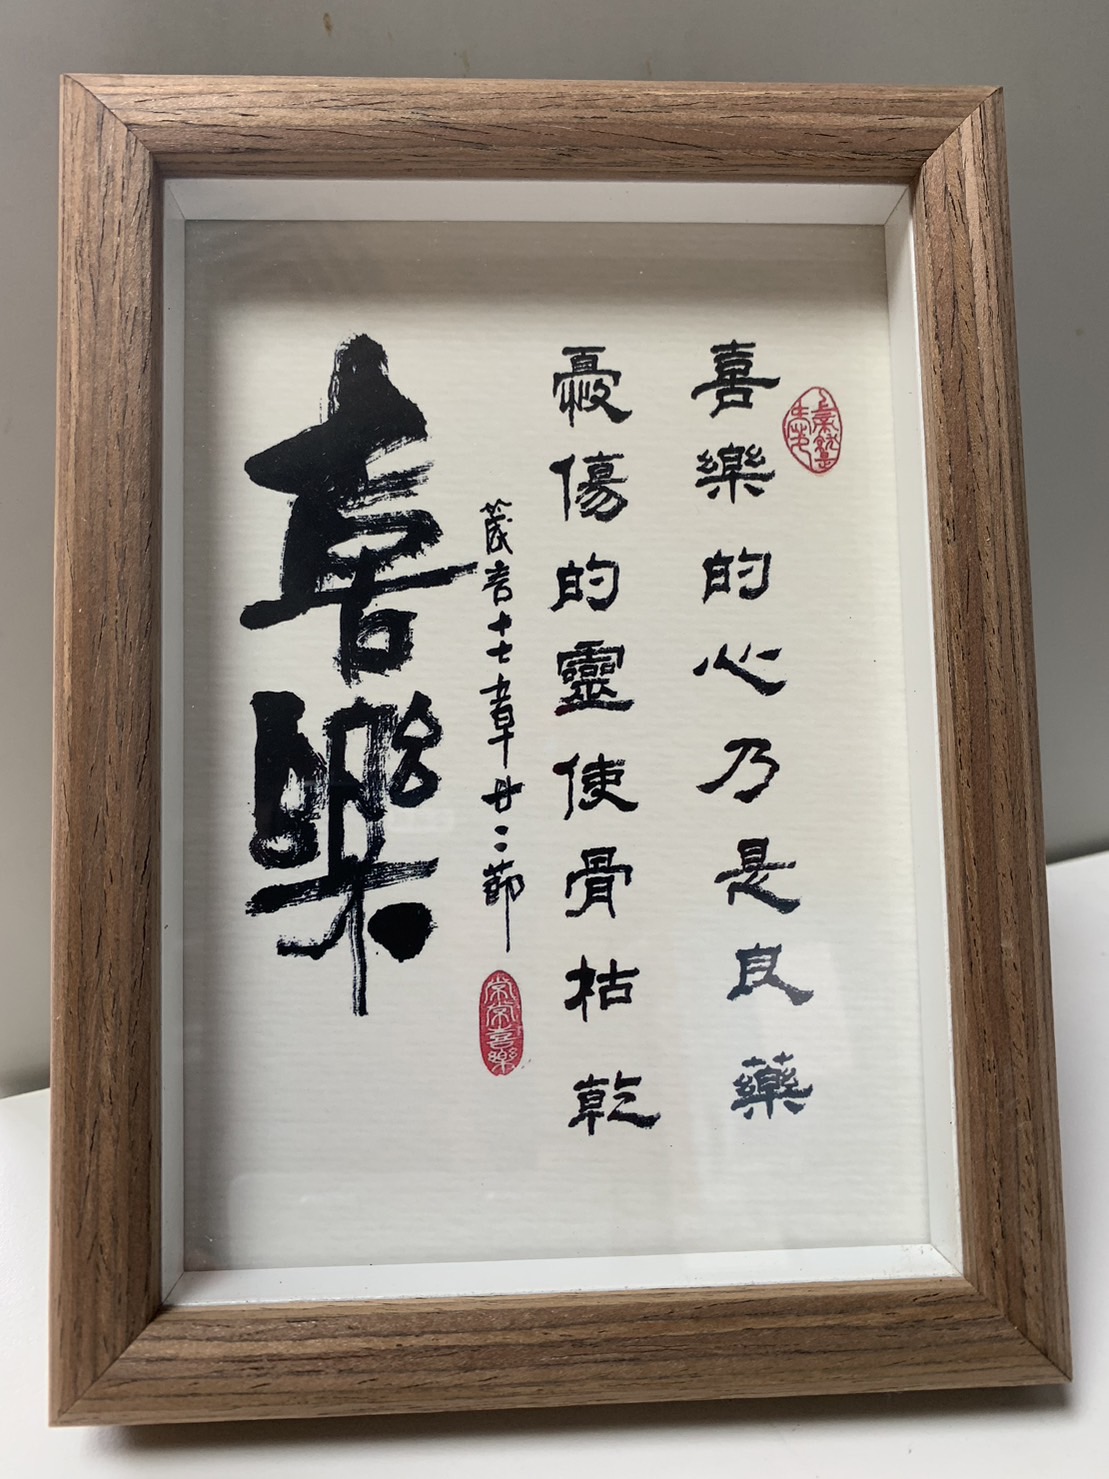 喜樂的心乃是良藥
憂傷的靈使骨枯乾
箴言十七章廿二節
喜樂
常常喜樂